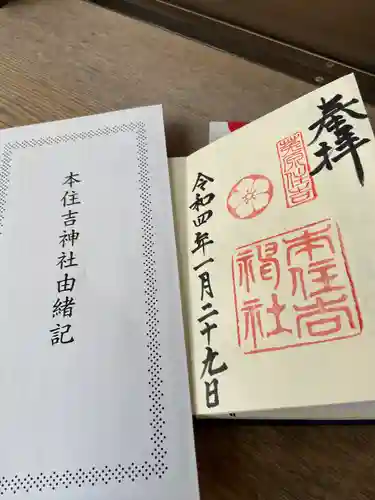 本住吉神社由緒記
奉拝
本住吉
神社
令和四年一月二十九日